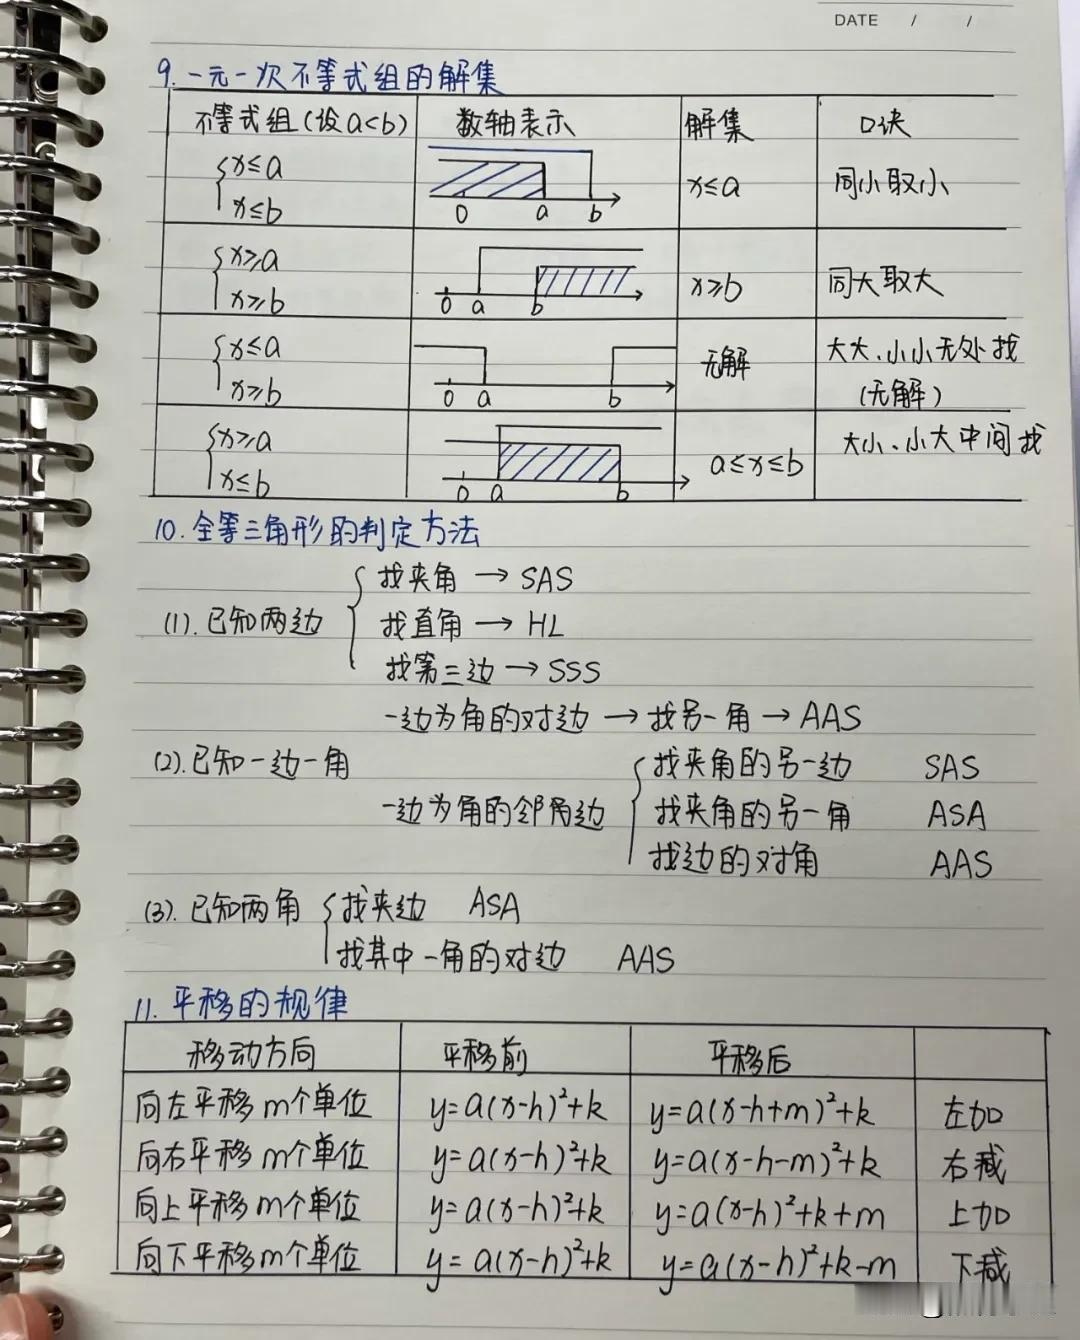 DATE / /
9. 一元一次不等式组的解集
不等式组(设a<b) 数轴表示 解集 口诀
{x≤a x≤b 0 a b x≤a 同小取小
{x≥a x≥b 0 a b x≥b 同大取大
{x≤a x≥b 0 a b 无解 大大、小小无处找(无解)
{x≥a x≤b 0 a b a≤x≤b 大小、小大中间找
10. 全等三角形的判定方法
(1). 已知两边
找夹角 → SAS
找直角 → HL
找第三边 → SSS
(2). 已知一边一角
一边为角的对边 → 找另一角 → AAS
一边为角的邻角边
找夹角的另一边 SAS
找夹角的另一角 ASA
找边的对角 AAS
(3). 已知两角
找夹边 ASA
找其中一角的对边 AAS
11. 平移的规律
移动方向 平移前 平移后
向左平移m个单位 y=a(x-h)²+k y=a(x-h+m)²+k 左加
向右平移m个单位 y=a(x-h)²+k y=a(x-h-m)²+k 右减
向上平移m个单位 y=a(x-h)²+k y=a(x-h)²+k+m 上加
向下平移m个单位 y=a(x-h)²+k y=a(x-h)²+k-m 下减